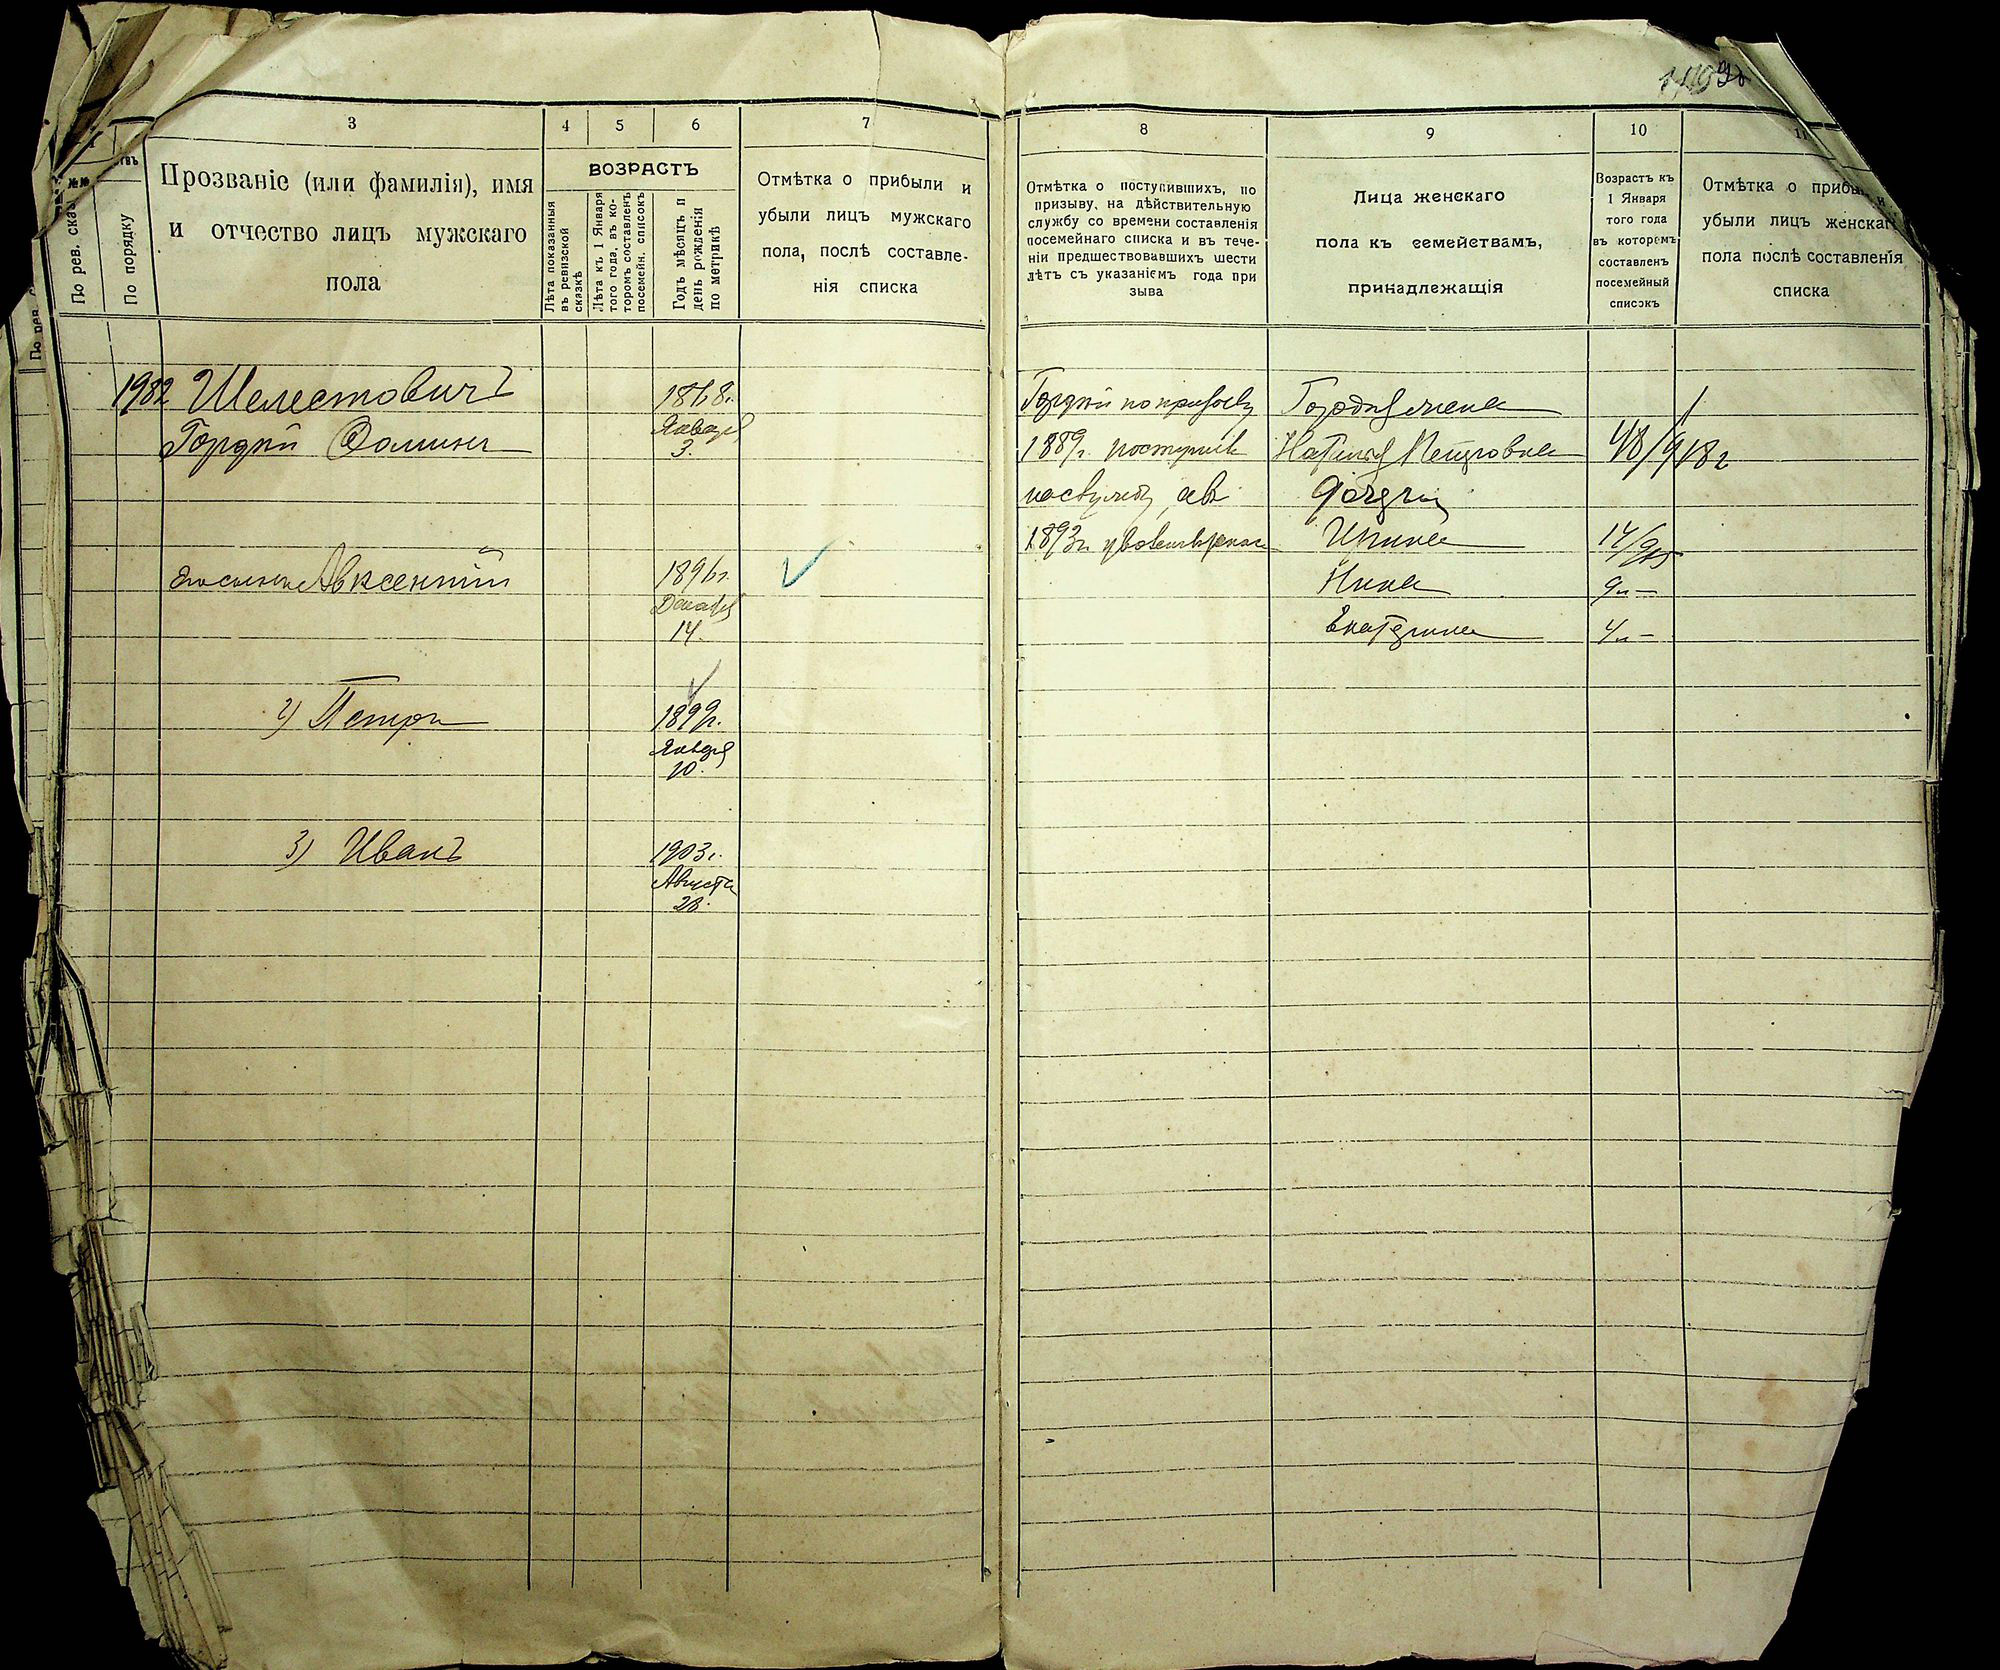 3
4
5
6
7
№№
По рев. сказ
По порядку
Прозваніе (или фамилія), имя
и отчество лицъ мужскаго
пола
ВОЗРАСТЪ
Лѣта показанныя
въ ревизской
сказкѣ
Лѣта къ 1 Января
того года, въ ко-
торомъ составленъ
посемейн. списокъ
Годъ мѣсяцъ и
день рожденія
по метрикѣ
Отмѣтка о прибыли и
убыли лицъ мужскаго
пола, послѣ составле-
нія списка
1982 Шелестовичъ
1868г.
Гордѣй Ѳоминъ
Января
3.
Авксентій
1896г.
Декабря
14.
2) Петръ
1899г.
Января
10.
3) Иванъ
1903г.
Августа
28.
8
9
10
11
Отмѣтка о поступившихъ, по
призыву, на дѣйствительную
службу со времени составленія
посемейнаго списка и въ тече-
ніи предшествовавшихъ шести
лѣтъ съ указаніемъ года при
зыва
Лица женскаго
пола къ семействамъ,
принадлежащія
Возрастъ къ
1 Января
того года
въ которомъ
составленъ
посемейный
списокъ
Отмѣтка о приб
убыли лицъ женскаг
пола послѣ составленія
списка
Гордѣй по призыву
Гордѣя жена
1889г. поступилъ
Наталья Петровна
на службу, а въ
дочери
1893г.
Ирина
Нина
9
Екатерина
4